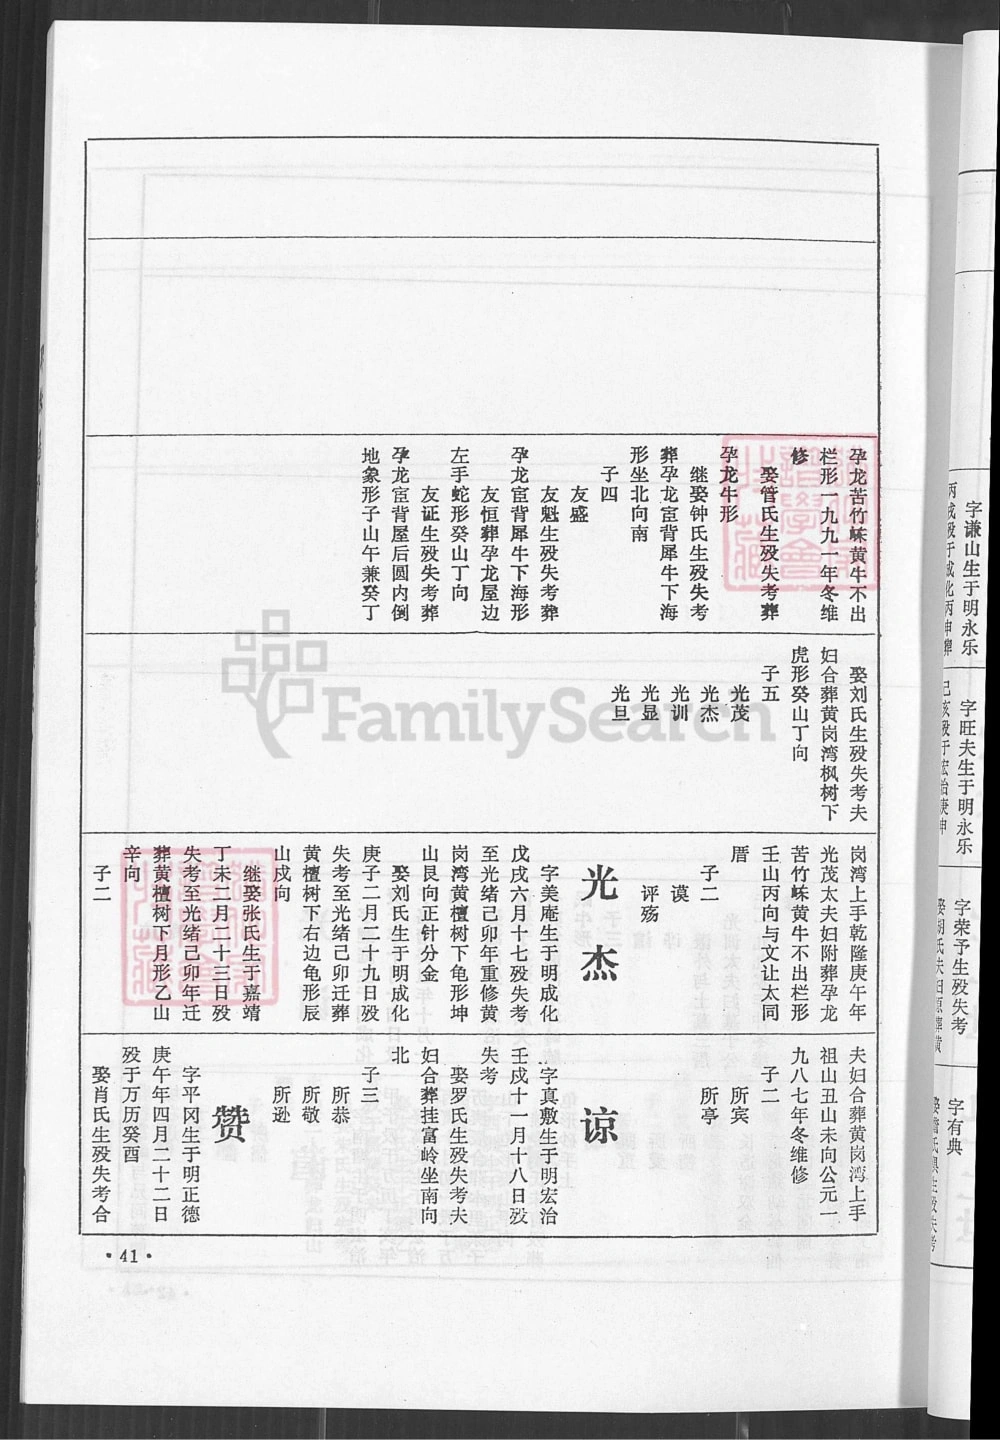 孕龙苦竹𡵆黄牛不出
栏形一九九一年冬维
修
娶管氏生殁失考葬
孕龙牛形
继娶钟氏生殁失考
葬孕龙窋背犀牛下海
形坐北向南
子四
友盛
友魁生殁失考葬
孕龙窋背犀牛下海形
友恒葬孕龙屋边
左手蛇形癸山丁向
友证生殁失考葬
孕龙窋背屋后圆内倒
地象形子山午兼癸丁
娶刘氏生殁失考夫
妇合葬黄岗湾枫树下
虎形癸山丁向
子五
光茂
光杰
光训
光显
光旦
岗湾上手乾隆庚午年
光茂太夫妇附葬孕龙
苦竹𡵆黄牛不出栏形
壬山丙向与文让太同
厝
子二
谟
评殇
光杰
字美庵生于明成化
戊戌六月十七殁失考
至光绪己卯年重修黄
岗湾黄檀树下龟形坤
山艮向正针分金
娶刘氏生于明成化
庚子二月二十九日殁
失考至光绪己卯迁葬
黄檀树下右边龟形辰
山戌向
继娶张氏生于嘉靖
丁未二月二十三日殁
失考至光绪己卯年迁
葬黄檀树下月形乙山
辛向
子二
夫妇合葬黄岗湾上手
祖山丑山未向公元一
九八七年冬维修
子二
所宾
所亭
谅
字真敷生于明宏治
壬戌十一月十八日殁
失考
娶罗氏生殁失考夫
妇合葬挂富岭坐南向
北
子三
所恭
所敬
所逊
赞
字平冈生于明正德
庚午年四月二十二日
殁于万历癸酉
娶肖氏生殁失考合
·41·
字谦山生于明永乐
丙戌殁于成化丙申葬
字旺夫生于明永乐
己亥殁于宏治庚申
字荣予生殁失考
字有典
FamilySearch